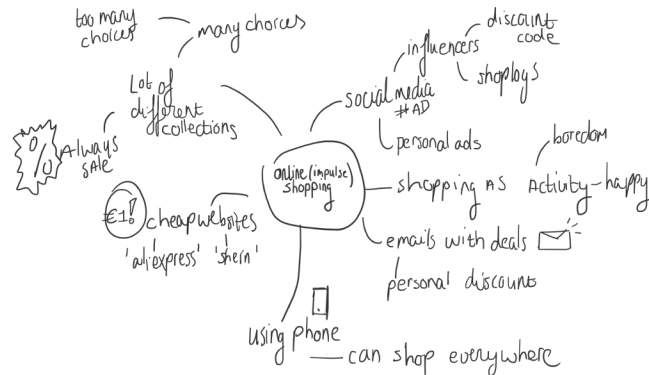 too many
choices
many choices
Lot of
different
collections
Always
SALE
%
€1!
cheap websites
'aliexpress' 'shein'
online (impulse)
shopping
social media
#AD
influencers
discount
code
shoplogs
personal ads
shopping AS Activity - happy
boredom
emails with deals
personal discount
using phone
can shop everywhere